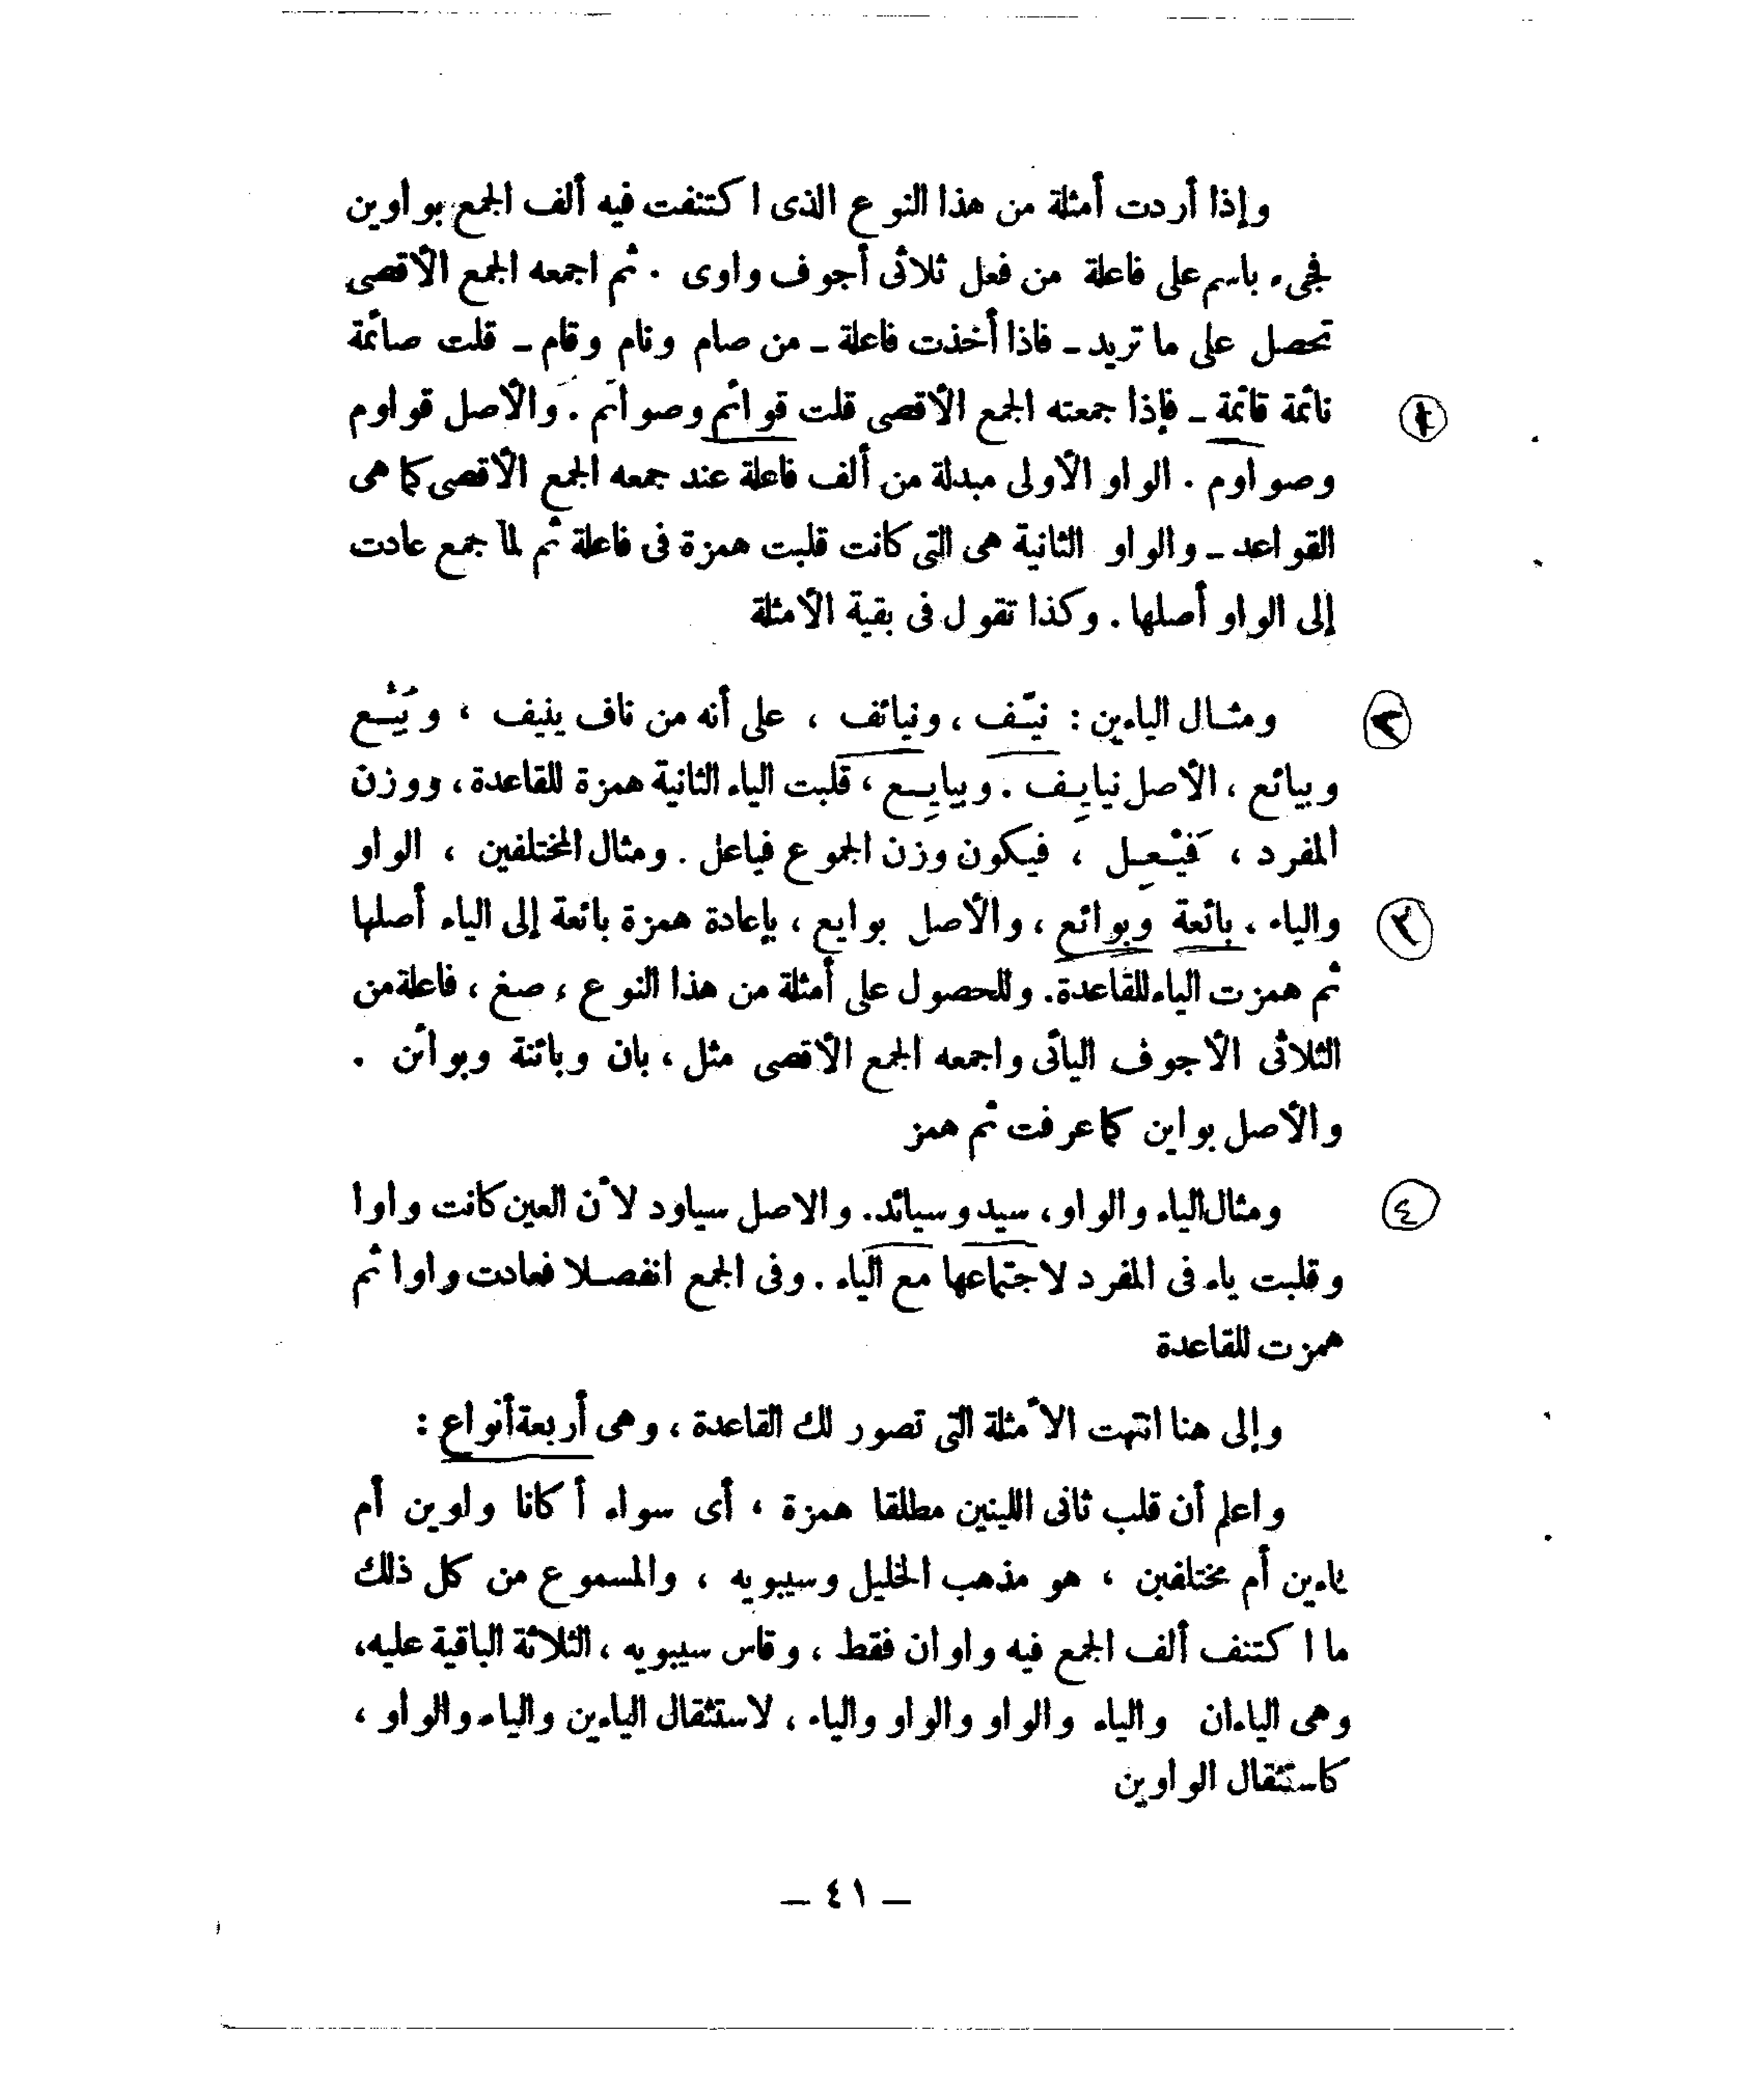 وإذا أردت أمثلة من هذا النوع الذى اكتنفت فيه ألف الجمع بواوين
فجىء باسم على فاعلة من فعل ثلاثى أجوف واوى . ثم اجمعه الجمع الأقصى
تحصل على ما تريد - فاذا أخذت فاعلة - من صام ونام وقام - قلت صائمة
نائمة قائمة - فإذا جمعته الجمع الأقصى قلت قوائم وصوائم . والأصل قواوم
وصواوم . الواو الأولى مبدلة من ألف فاعلة عند جمعه الجمع الأقصى كما هى
القواعد - والواو الثانية هى التى كانت قلبت همزة فى فاعلة ثم لما جمع عادت
إلى الواو أصلها . وكذا تقول فى بقية الأمثلة
٢ ومثال الياءين : نيّف ، ونيائف ، على أنه من ناف ينيف ، وبيّع
وبيائع ، الأصل نيايِف . وبيايِع ، قلبت الياء الثانية همزة للقاعدة ، ووزن
المفرد ، فَيْعِل ، فيكون وزن الجموع فياعل . ومثال المختلفين ، الواو
والياء ، بائعة وبوائع ، والأصل بوايع ، بإعادة همزة بائعة إلى الياء أصلها
ثم همزت الياء للقاعدة. وللحصول على أمثلة من هذا النوع ، صغ ، فاعلة من
الثلاثى الأجوف اليائى واجمعه الجمع الأقصى مثل ، بان وبائنة وبوائن .
والأصل بواين كما عرفت ثم همز
٤ ومثال الياء والواو ، سيد وسيائد. والاصل سياود لأن العين كانت واوا
وقلبت ياء فى المفرد لاجتماعها مع الياء . وفى الجمع انفصلا فعادت واوا ثم
همزت للقاعدة
وإلى هنا انتهت الأمثلة التى تصور لك القاعدة ، وهى أربعة أنواع :
واعلم أن قلب ثانى اللينين مطلقا همزة ، أى سواء أكانا واوين أم
ياءين أم مختلفين ، هو مذهب الخليل وسيبويه ، والمسموع من كل ذلك
ما اكتنف ألف الجمع فيه واوان فقط ، وقاس سيبويه ، الثلاثة الباقية عليه،
وهى الياءان والياء والواو والواو والياء ، لاستثقال الياءين والياء والواو ،
كاستثقال الواوين
- ٤١ -